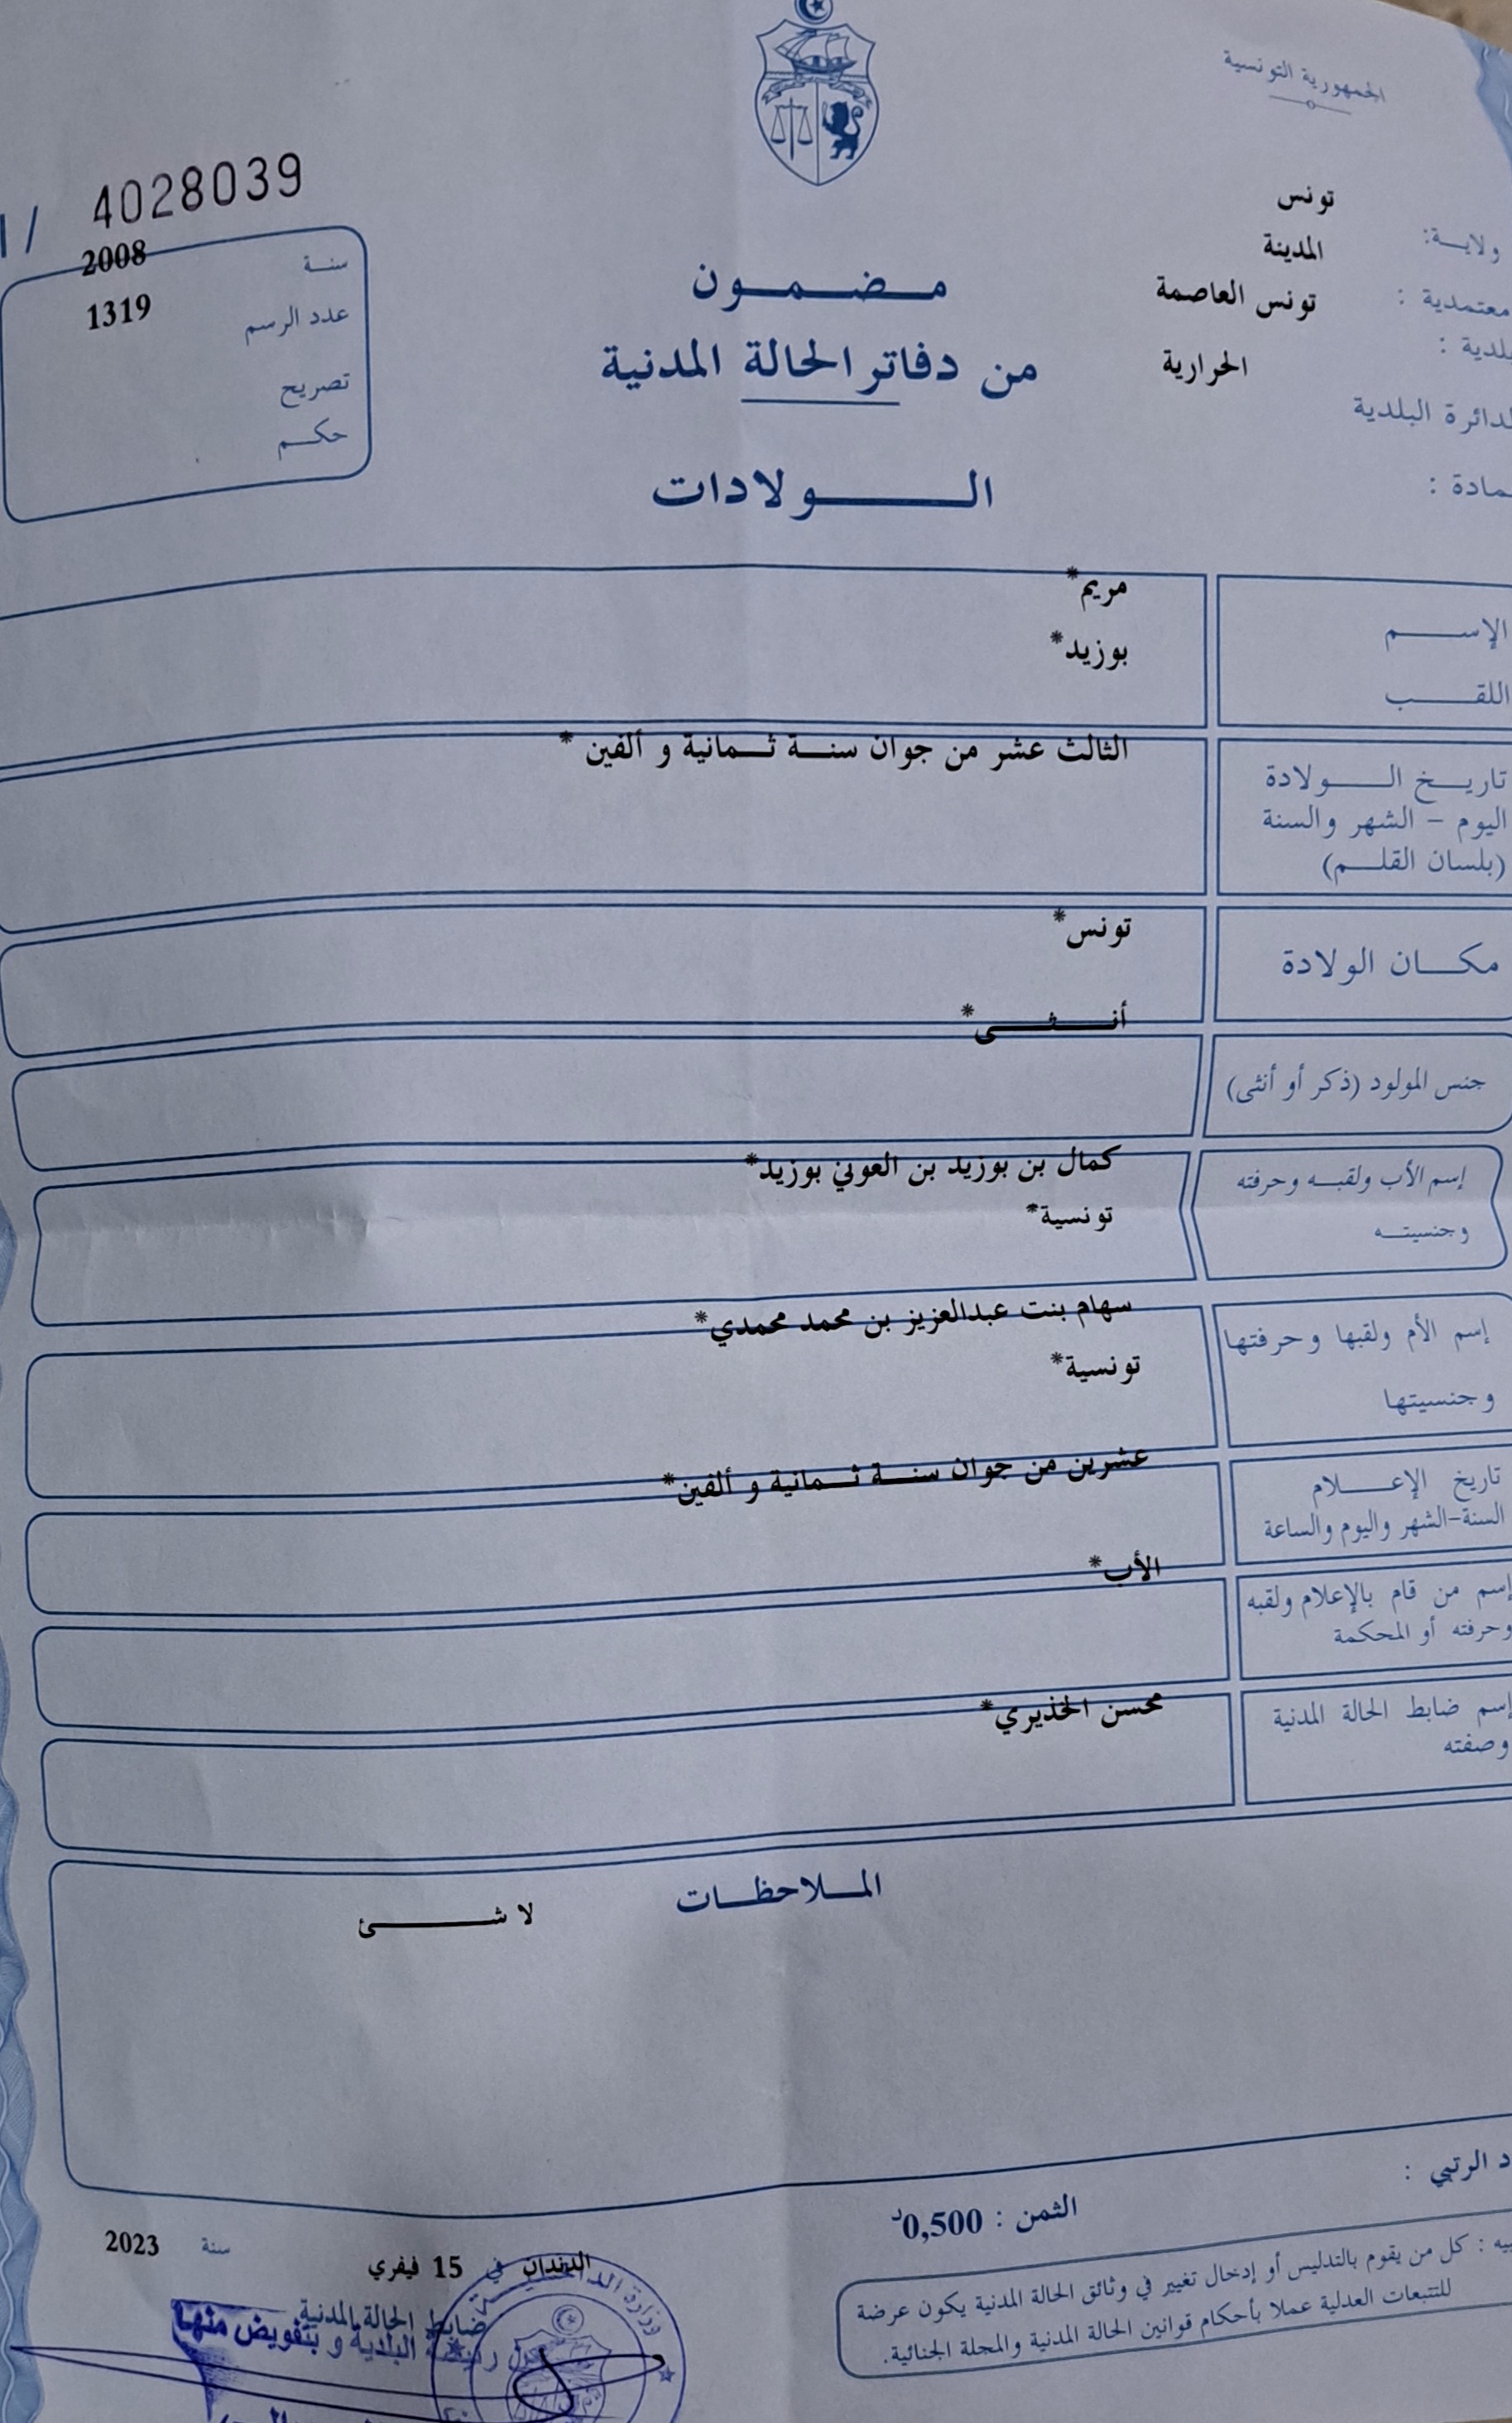 الجمهورية التونسية
4028039 / 1
ولايـــة: تونس
معتمدية : المدينة
بلدية : تونس العاصمة
الدائرة البلدية الحرارية
مادة :
سنــة 2008
عدد الرسم 1319
تصريح
حكــم
مــضــمــون
من دفاتر الحالة المدنية
الــولادات
الإســـم مريم*
اللقـــب بوزيد*
تاريــخ الـــولادة
اليوم – الشهر والسنة
(بلسان القلــم)
الثالث عشر من جوان سنــة ثــمانية و ألفين *
مكـــان الولادة تونس*
جنس المولود (ذكر أو أنثى) أنــثــى*
إسم الأب ولقبــه وحرفته كمال بن بوزيد بن العوني بوزيد*
وجنسيتــه تونسية*
إسم الأم ولقبها وحرفتها سهام بنت عبدالعزيز بن محمد محمدي*
وجنسيتها تونسية*
تاريخ الإعـــلام عشرين من جوان سنــة ثــمانية و ألفين*
السنة-الشهر واليوم والساعة
إسم من قام بالإعلام ولقبه الأب*
وحرفته أو المحكمة
إسم ضابط الحالة المدنية محسن الخذيري*
وصفته
المــلاحظــات
لا شـــئ
د الرتبي :
الثمن : 0,500د
بيه : كل من يقوم بالتدليس أو إدخال تغيير في وثائق الحالة المدنية يكون عرضة
للتتبعات العدلية عملا بأحكام قوانين الحالة المدنية والمجلة الجنائية.
الدندان في 15 فيفري سنة 2023
ضابط الحالة المدنية
البلدية و بتفويض منها